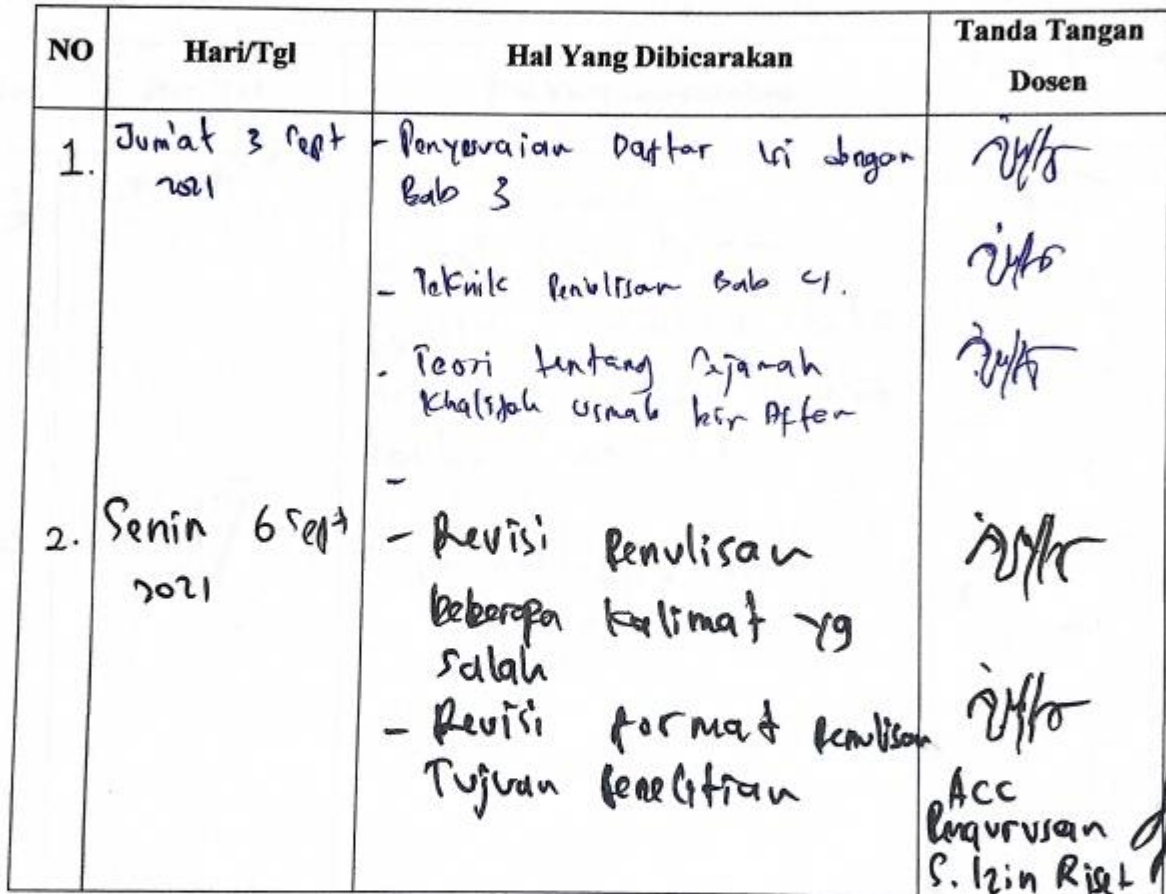 NO Hari/Tgl Hal Yang Dibicarakan Tanda Tangan Dosen
1. Jum'at 3 Sept 2021
- Penyesuaian Daftar isi dengan
Bab 3
- Teknik Penulisan Bab 4.
- Teori tentang Sejarah
Khalifah
-
2. Senin 6 Sept 2021
- Revisi Penulisan
beberapa kalimat yg
salah
- Revisi format Penulisan
Tujuan Penelitian
ACC
Pengurusan
S. Izin Riset